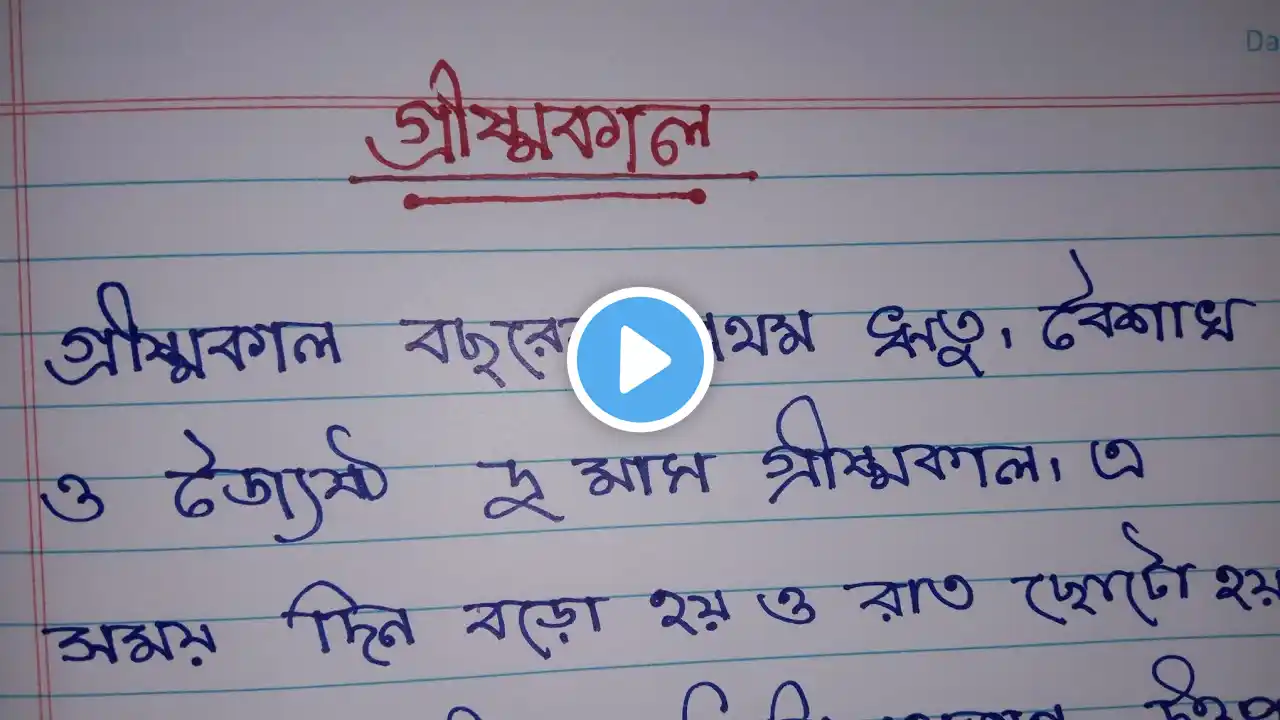 Da
গ্রীষ্মকাল
গ্রীষ্মকাল বছরের প্রথম ঋতু। বৈশাখ
ও জ্যৈষ্ঠ দু মাস গ্রীষ্মকাল। এ
সময় দিন বড়ো হয় ও রাত ছোটো হয়